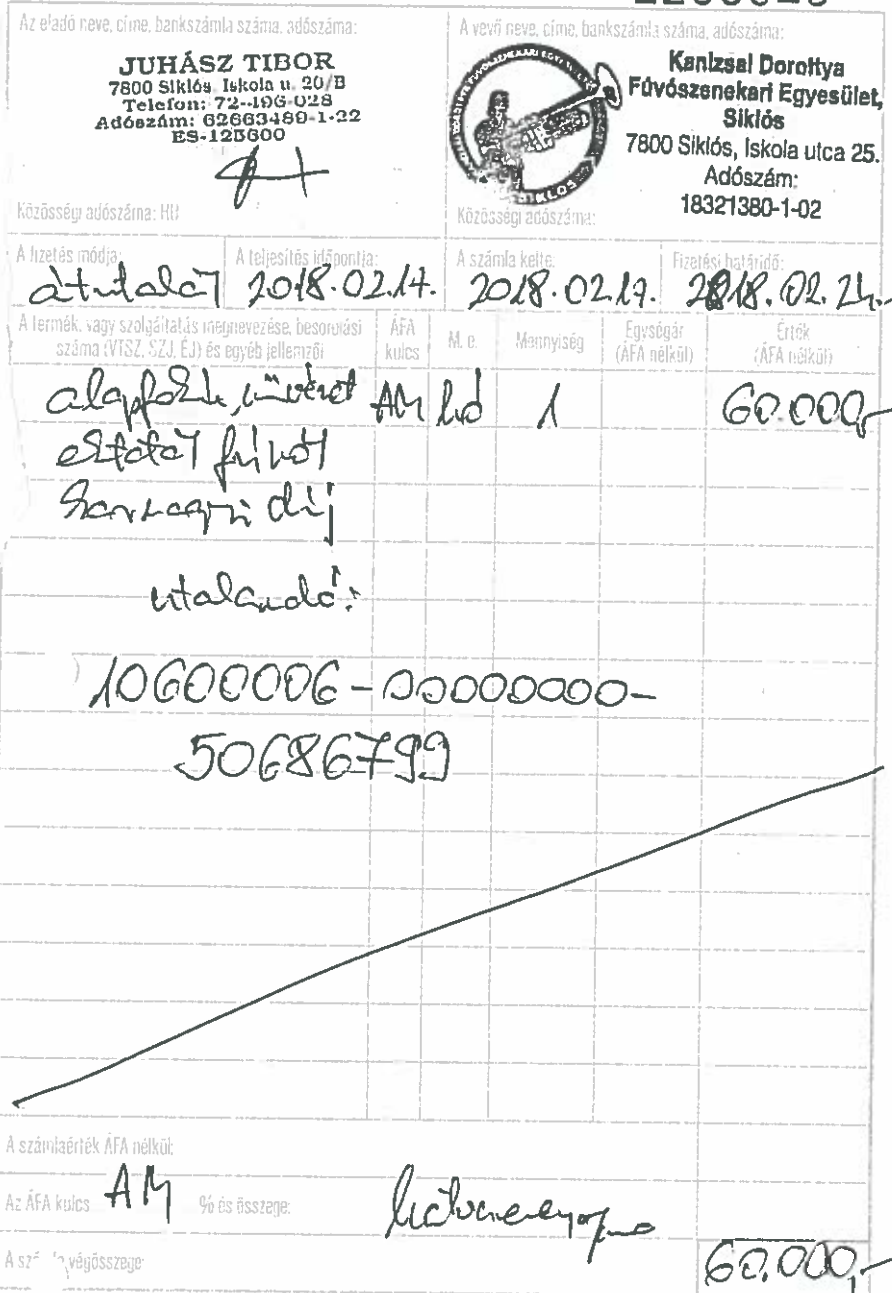 Az eladó neve, címe, bankszámla száma, adószáma:
JUHÁSZ TIBOR
7800 Siklós, Iskola u. 20/B
Telefon: 72-496-028
Adószám: 62663480-1-22
ES-125600
Közösségi adószáma: HU
A vevő neve, címe, bankszámla száma, adószáma:
Kanizsai Dorottya
Fúvószenekari Egyesület,
Siklós
7800 Siklós, Iskola utca 25.
Adószám:
18321380-1-02
SIKLÓS
Közösségi adószáma:
A fizetés módja: A teljesítés időpontja: A számla kelte: Fizetési határidő:
átutalás 2018.02.17. 2018.02.17. 2018.02.24.
A termék, vagy szolgáltatás megnevezése, besorolási száma (VTSZ, SZJ, ÉJ) és egyéb jellemzői ÁFA kulcs M. e. Mennyiség Egységár (ÁFA nélkül) Érték (ÁFA nélkül)
alapfokú művészet AM hó 1 60.000,-
oktatás fúvós
díj
utalandó:
10600006-00000000-
50686799
A számlaérték ÁFA nélkül:
Az ÁFA kulcs AM % és összege: hatvanezer
A végösszege: 60.000,-